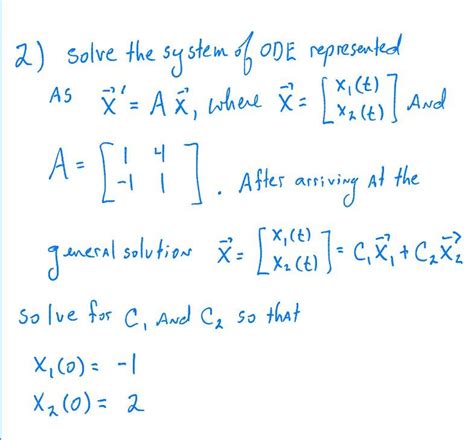 2) Solve the system of ODE represented
As x⃗' = A x⃗, where x⃗ = [x₁(t) x₂(t)] And
A = [1 4 -1 1]. After arriving At the
general solution x⃗ = [x₁(t) x₂(t)] = C₁x⃗₁ + C₂x⃗₂
solve for C₁ And C₂ so that
x₁(0) = -1
x₂(0) = 2